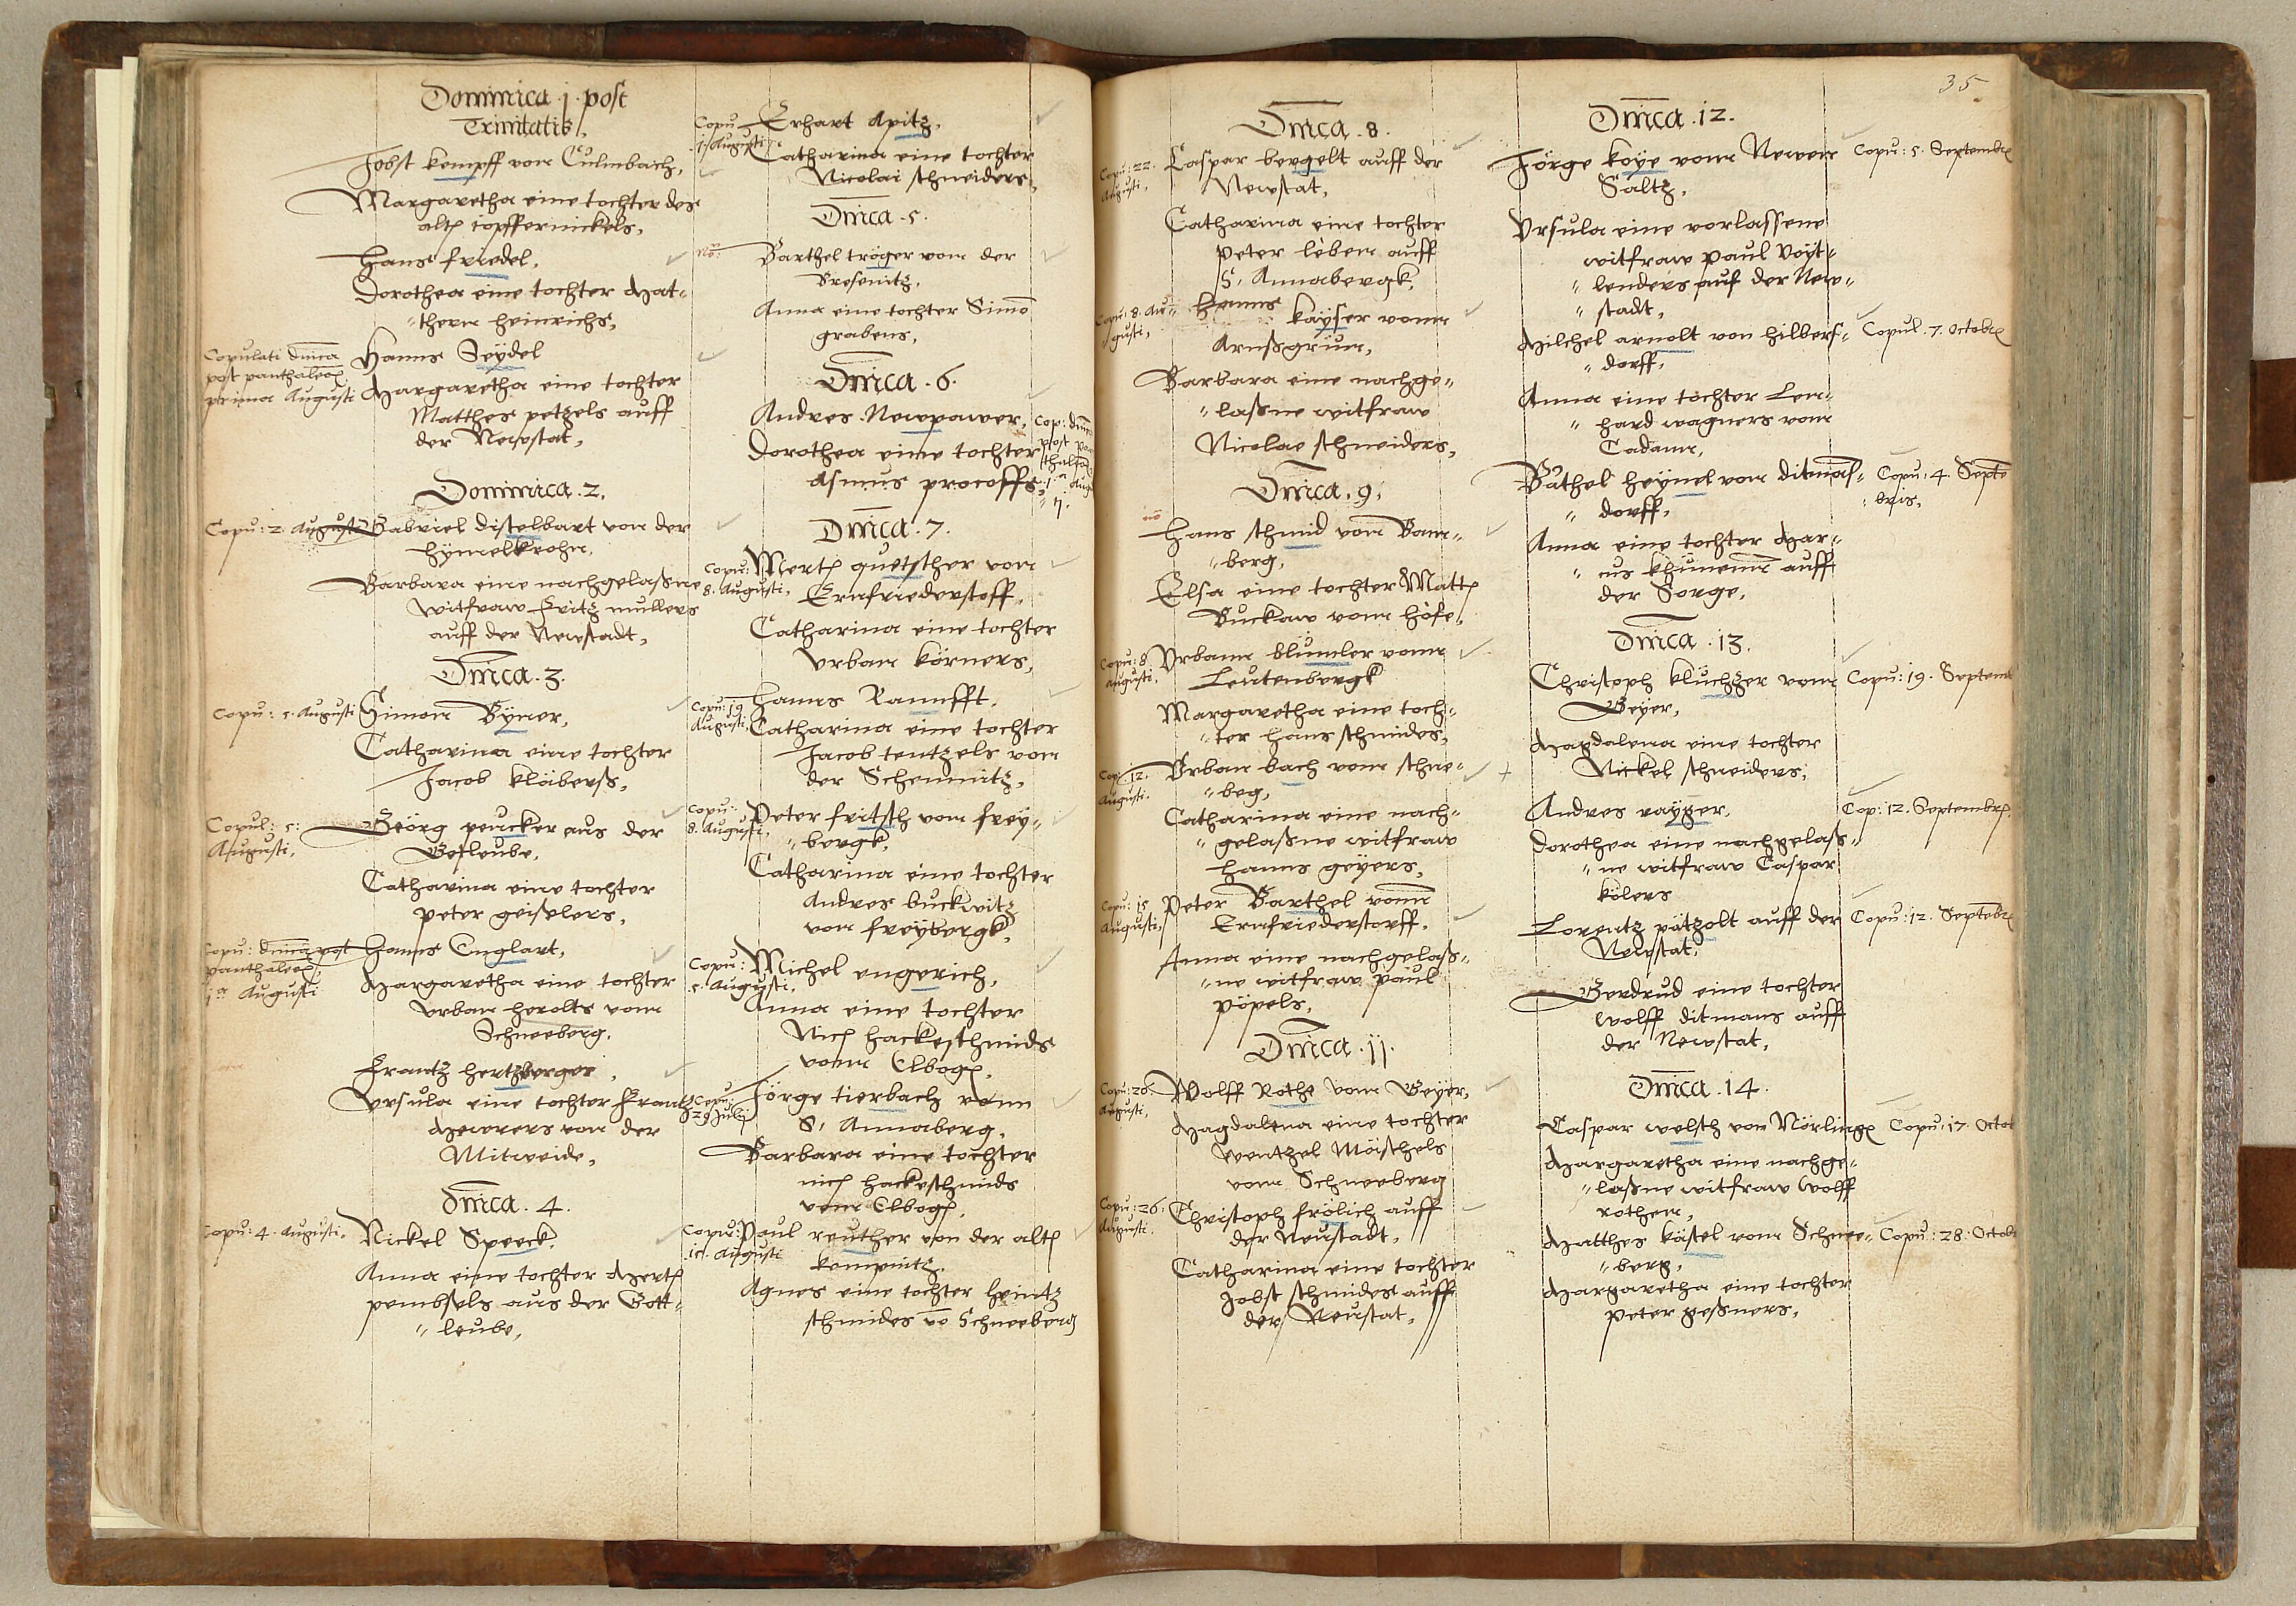 Dominica .j. post
Trinitatis,
Jobst kempff von Culmbach,
Margaretha eine tochter des
alten topffernickels,
Hans friedel,
Dorothea eine tochter Mat-
"thern heinrichs,
Copulati dnica
post panthaleon
prima Augusti
Hanns Seydel
Margaretha eine tochter
Matthes petzels auff
der Newstat,
Dominica .2.
Copu: 2. Augusti
Gabriel distelbart von der
hymelkrohn,
Barbara eine nachgelaßne
witfraw Fritz mullers
auff der Newstadt,
Dnica .3.
Copu: 5. Augusti
Simon Byner,
Catharina eine tochter
Jacob kläberß,
Copul: 5:
Augusti,
Geörg peucker aus der
Gosleube,
Catharina eine tochter
peter geiselers,
Copu: dnica post
panthaleon,
1a Augusti
Hanns Englart,
Margaretha eine tochter
Urban herolts vom
Schneeberg,
Frantz hertzberger,
Ursula eine tochter Frantz
Mewrers von der
Mitweide,
Dnica . 4.
Copu: 4. Augusti,
Nickel Speeck,
Anna eine tochter Merten
pembsels aus der Gott-
"leube,
Copu
1 Augusti
Erhart Apitz,
Catharina eine tochter
Nicolai schneiders,
Dnica .5.
no:
Barthel tröger von der
Bresnitz,
Anna eine tochter Simon
grabens,
Dnica .6.
Andres Newpawer,
Cop: dnica
post pan
thaleon
1a Aug
Dorothea eine tochter
Asmus procoffs,
Dnica .7.
Copu:
8. Augusti,
Merten quetscher von
Ernfriederstoff,
Catharina eine tochter
Urban körners,
Copu: 19
Augusti,
Hanns Rannfft,
Catharina eine tochter
Jacob tentzels von
der Schemnitz,
Copu:
8. Augusti,
Peter fritsch vom frey-
"bergk,
Catharina eine tochter
Andres buckwitz
von freybergk,
Copu:
5. Augusti,
Michel engerich,
Anna eine tochter
Nick hackeschmids
vom Elbogen,
Copu:
29 Julij
Jörge tierbach vonn
S. Annaberg,
Barbara eine tochter
nick hackeschmids
vom Elbogen,
Copu:
15. Augusti
Paul reuther von der alten
kempnitz,
Agnes eine tochter heintz
schmides vo Schneeberg
35
Dnica . 8.
Copu: 22.
Augusti,
Caspar bergelt auff der
Newstat,
Catharina eine tochter
peter leben auff
S. Annabergk,
Copu: 8. Au-
gusti,
Hanns kayser vonn
Arnßgrün,
Barbara eine nachge-
"laßne witfraw
Nicolae schneiders,
Dnica . 9.
no
Hans schmid vom Bam-
"berg,
Elsa eine tochter Matten
Buckaw vom hofe,
Copu: 8
Augusti,
Urbann blumler vonn
Leutenbergk
Margaretha eine toch-
"ter hans schmides,
Cop: 12.
Augusti.
Urban bach vom schne-
"beg,
Catharina eine nach-
"gelaßne witfraw
hanns geyers,
Copu: 15
Augusti,
Peter Barthel vonn
Ernfriederstorff,
Anna eine nachgelaß-
"ne witfraw paul
pöpels,
Dnica . 11.
Copu: 26.
Augusti,
Wolff Rothe vom Geyer,
Magdalena eine tochter
wentzel Mäschels
vom Schneeberg
Copu: 26.
Augusti.
Christoph frölich auff
der Neustadt,
Catharina eine tochter
Jobst schmides auff
der Neustat,
Dnica . 12.
Jörge koye vom Newen
Saltz,
Copu: 5. Septembr
Ursula eine vorlassene
witfraw paul Voyt-
"lenders auf der New-
"stadt,
Milchel arnolt von hilbers-
"dorff,
Copul. 7. Octobr
Anna eine tochter Len-
"hard wagners vom
Cadann,
Bathel heynel von ditmas-
"dorff,
Copu: 4. Septe
bris,
Anna eine tochter Mar-
"cus khünemn auff
der Sorge,
Dnica . 13.
Christoph kluchzer vom
Geyer,
Copu: 19. Septem
Magdalena eine tochter
Nickel schneiders,
Andres rayger,
Cop: 12. Septembr,
Dorothea eine nachgelaß-
"ne witfraw Caspar
kölers
Lorentz pätzolt auff der
Newstat,
Copu: 12. Septebr
Gerdrud eine tochter
Wolff ditmans auff
der Newstat,
Dnica . 14.
Caspar welsch von Nörlingen
Copu: 17. Octo
Margaretha eine nachge-
"laßne witfraw Wolff
rothen,
Matthes kästel vom Schnee-
"berg,
Copu: 28. Octob
Margaretha eine tochter
peter geßners,